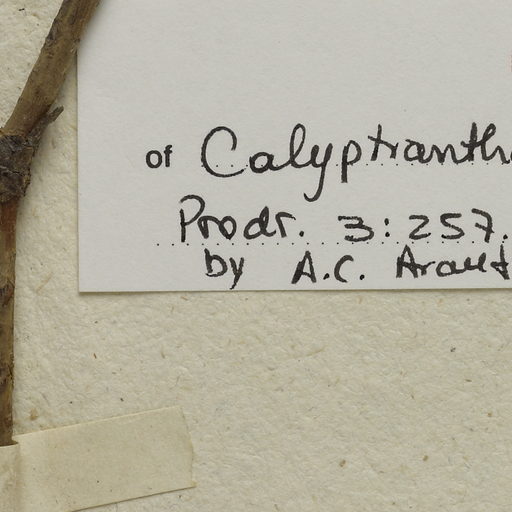 of Calyptranth
Prodr. 3:257.
by A.C. Araut